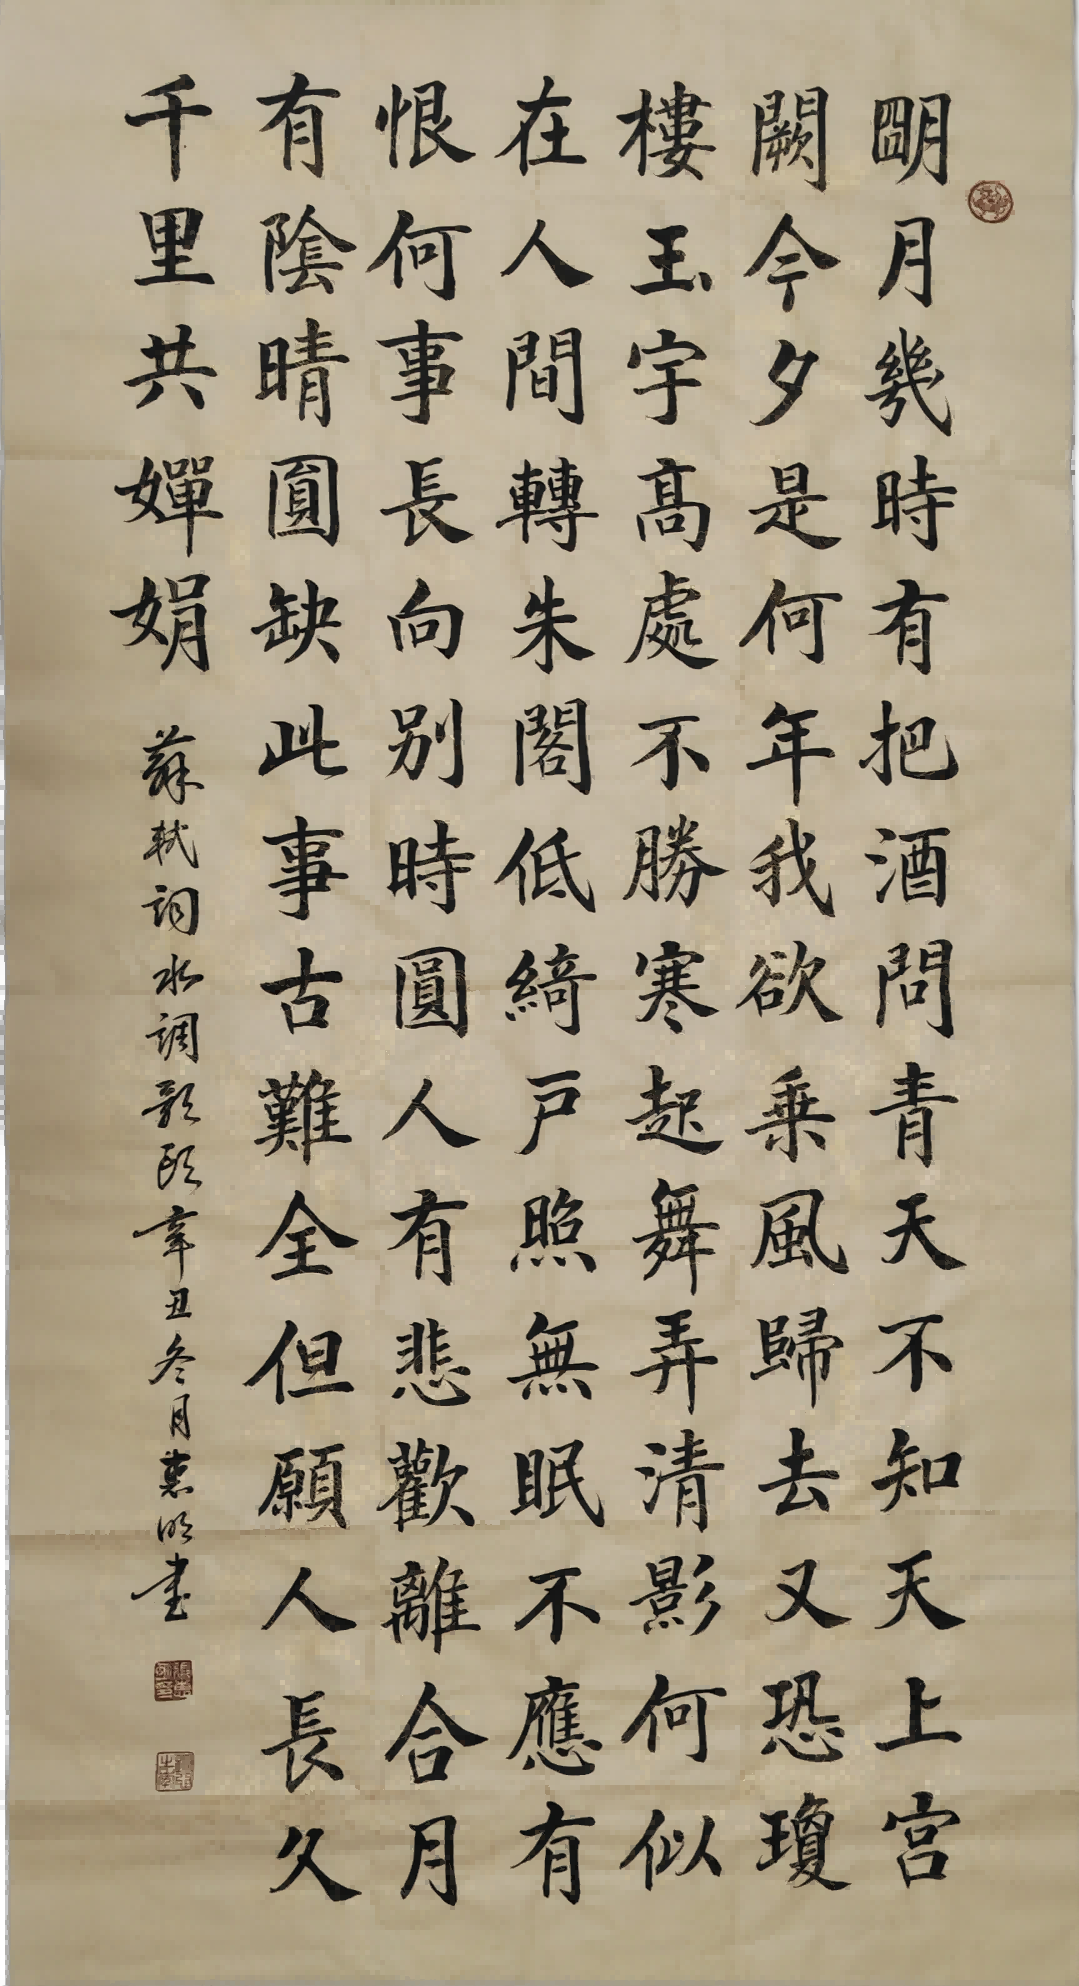 朙月幾時有把酒問青天不知天上宮
闕今夕是何年我欲乗風歸去又恐瓊
樓玉宇髙處不勝寒起舞弄清影何似
在人間轉朱閣低綺戸照無眠不應有
恨何事長向别時圓人有悲歡離合月
有陰晴圓缺此事古難全但願人長久
千里共嬋娟
蘇軾词水调歌頭辛丑冬月惠明书